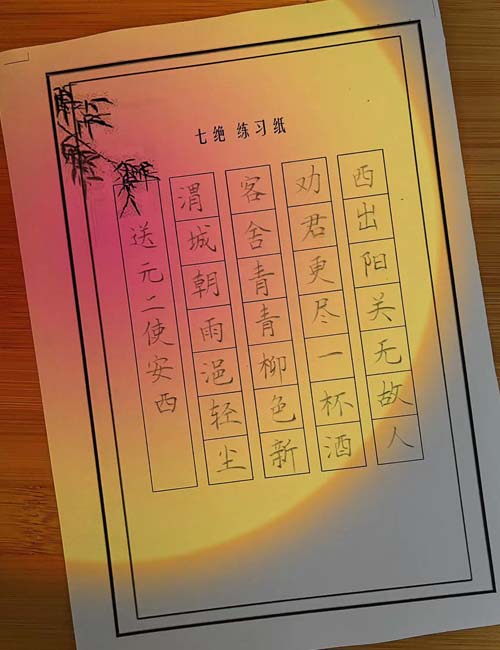 七绝 练习纸
送元二使安西
渭城朝雨浥轻尘
客舍青青柳色新
劝君更尽一杯酒
西出阳关无故人